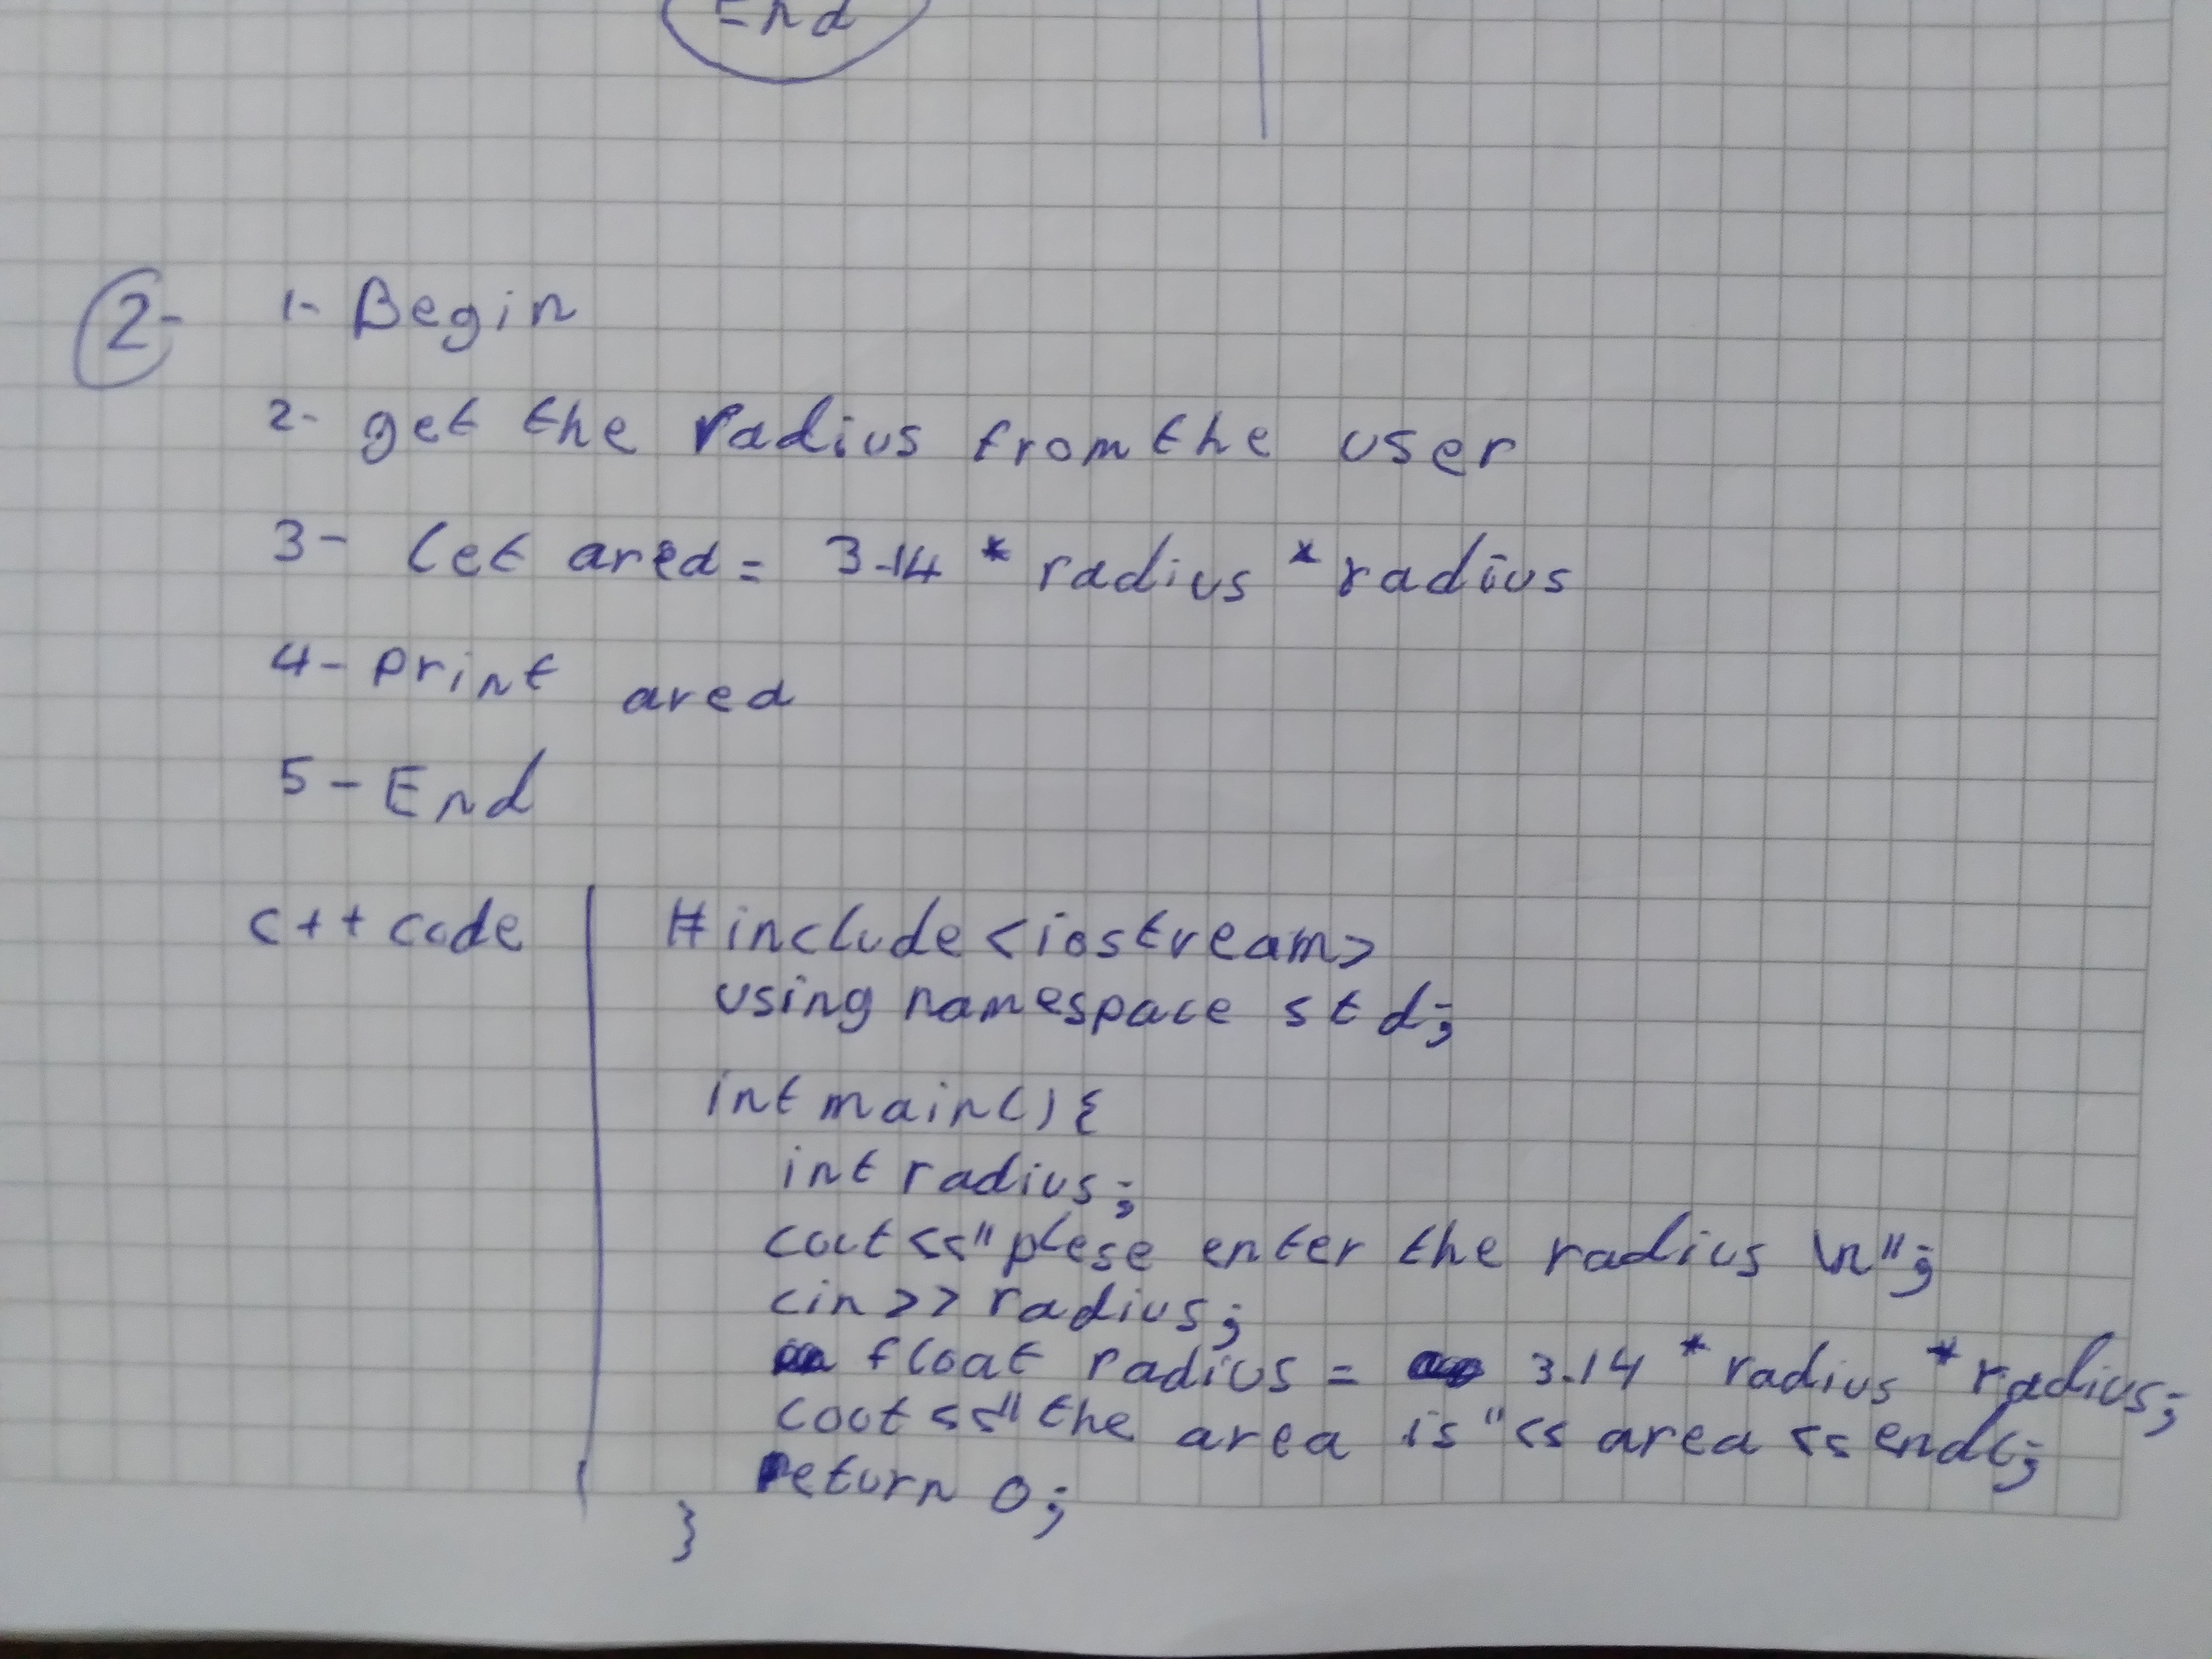 End
2-
1- Begin
2- get the radius from the user
3- let area = 3.14 * radius * radius
4- print area
5- End
c++ code
#include <iostream>
using namespace std;
int main() {
int radius;
cout << "plese enter the radius \n";
cin >> radius;
float radius = 3.14 * radius * radius;
cout << "the area is" << area << endl;
return 0;
}